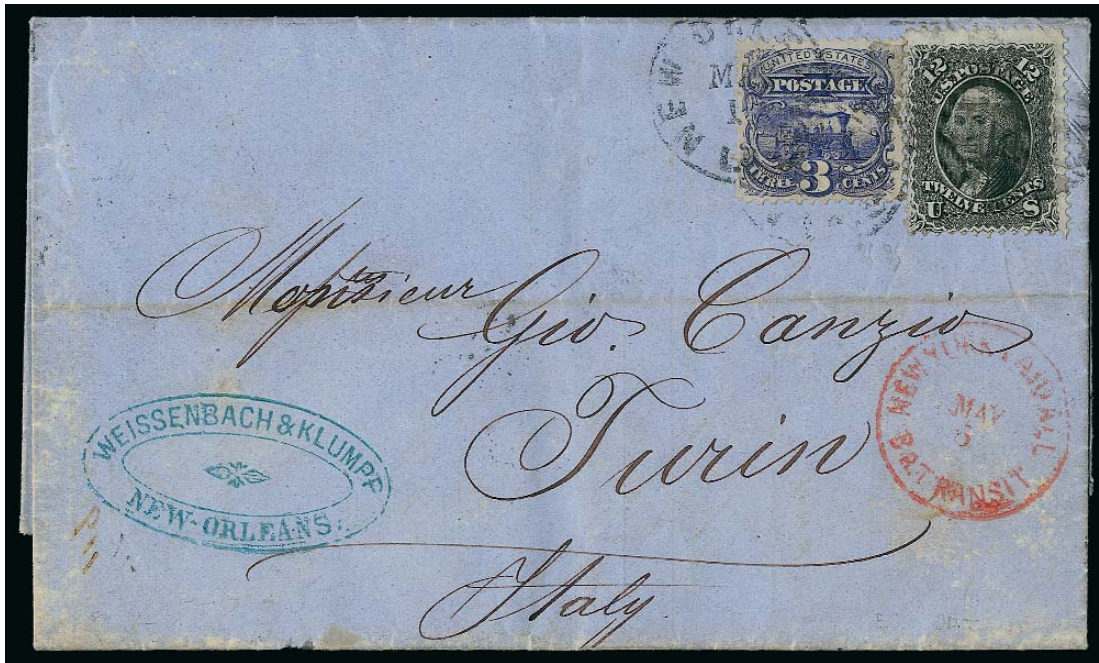 NEW ORL
MA
1
LA
UNITED STATES
POSTAGE
THREE 3 CENTS
12 12
U.S. POSTAGE
TWELVE CENTS
U S
Monsieur Gio. Canzio
Turin
Italy
NEW YORK PAID ALL
MAY
6
BR. TRANSIT
WEISSENBACH & KLUMPF
NEW-ORLEANS.